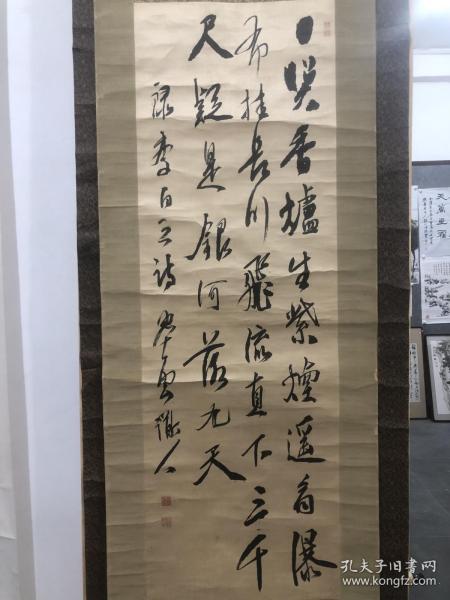 日照香爐生紫煙遥看瀑
布挂長川飛流直下三千
尺疑是銀河落九天
録李白之詩
人
天
孔夫子旧书网
www.kongfz.com